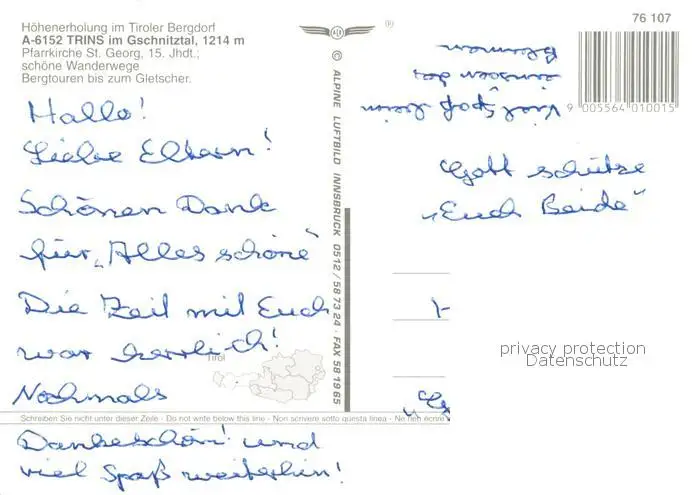 Höhenerholung im Tiroler Bergdorf
A-6152 TRINS im Gschnitztal, 1214 m
Pfarrkirche St. Georg, 15. Jhdt.;
schöne Wanderwege
Bergtouren bis zum Gletscher.
Hallo!
Liebe Eltern!
Schönen Dank
für „Alles schöne"
Die Zeit mit Euch
war herrlich!
Nochmals
Tirol
Schreiben Sie nicht unter dieser Zeile - Do not write below this line - Non scrivere sotto questa linea - Ne rien écrire
Dankeschön! und
viel Spaß weiterhin!
© ALPINE LUFTBILD INNSBRUCK 0512 / 58 73 24 · FAX 58 19 65
76 107
9 005564 010015
Viel Spaß beim
Blumen
Gott schütze
„Euch Beide"
privacy protection
Datenschutz